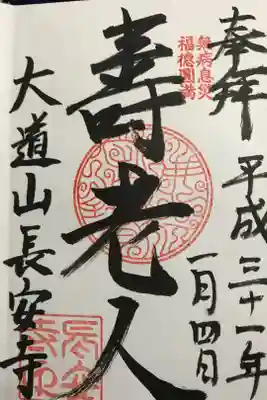 奉拜
平成三十一年
一月四日
無病息災
福徳圓満
壽老人
大道山長安寺